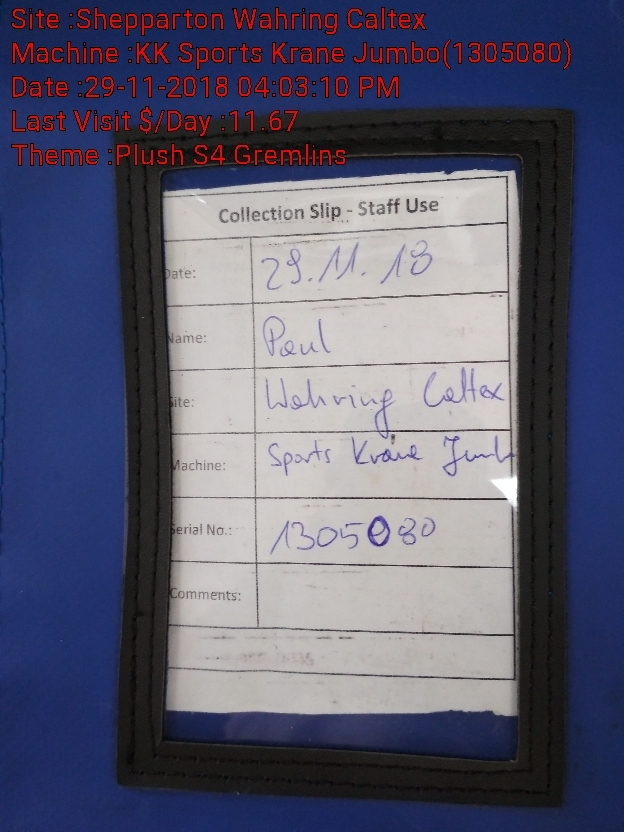 Site :Shepparton Wahring Caltex
Machine :KK Sports Krane Jumbo(1305080)
Date :29-11-2018 04:03:10 PM
Last Visit $/Day :11.67
Theme :Plush S4 Gremlins
Collection Slip - Staff Use
Date: 29.11.18
Name: Paul
Site: Wahring Caltex
Machine: Sports Krane Jumb
Serial No.: 1305080
Comments: